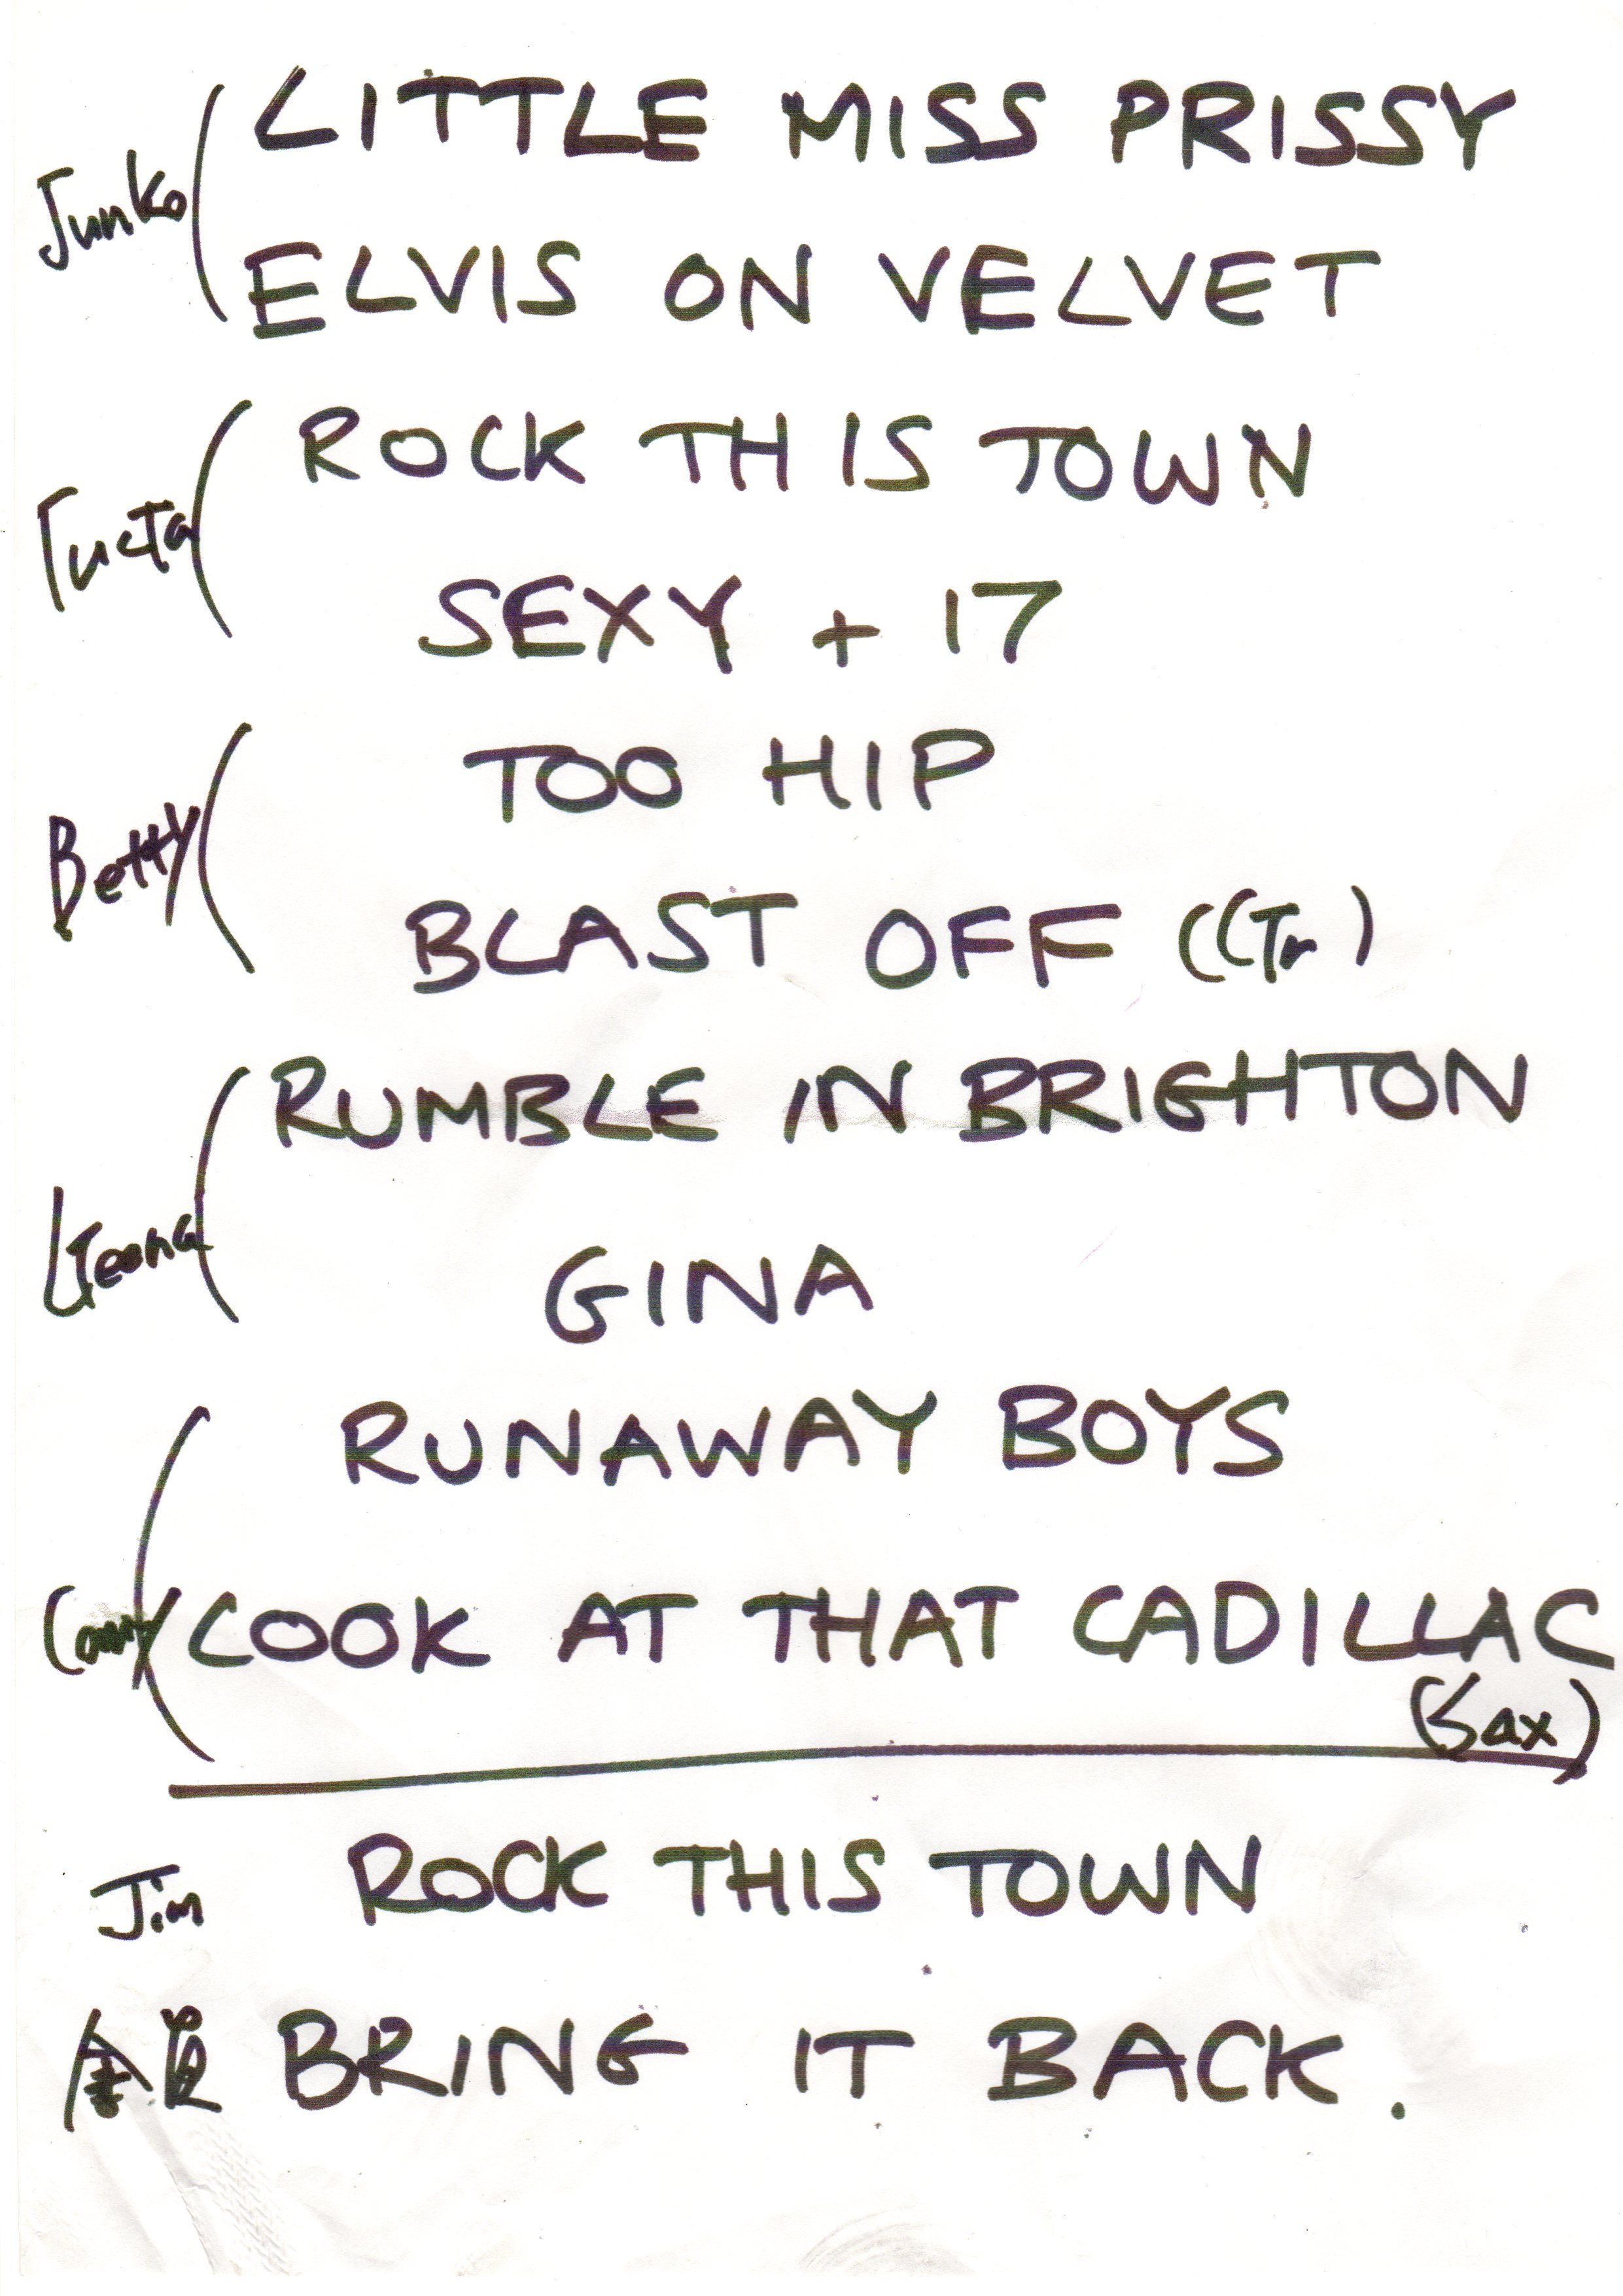 Junko
LITTLE MISS PRISSY
ELVIS ON VELVET
ROCK THIS TOWN
SEXY + 17
Betty
TOO HIP
BLAST OFF
RUMBLE IN BRIGHTON
GINA
RUNAWAY BOYS
LOOK AT THAT CADILLAC
(Sax)
Jim ROCK THIS TOWN
全員 BRING IT BACK.